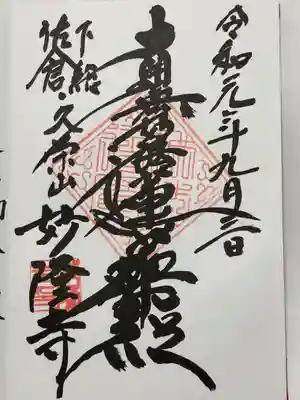 令和元年九月三日
南無妙法蓮華経
下総
佐倉・久栄山
妙隆寺